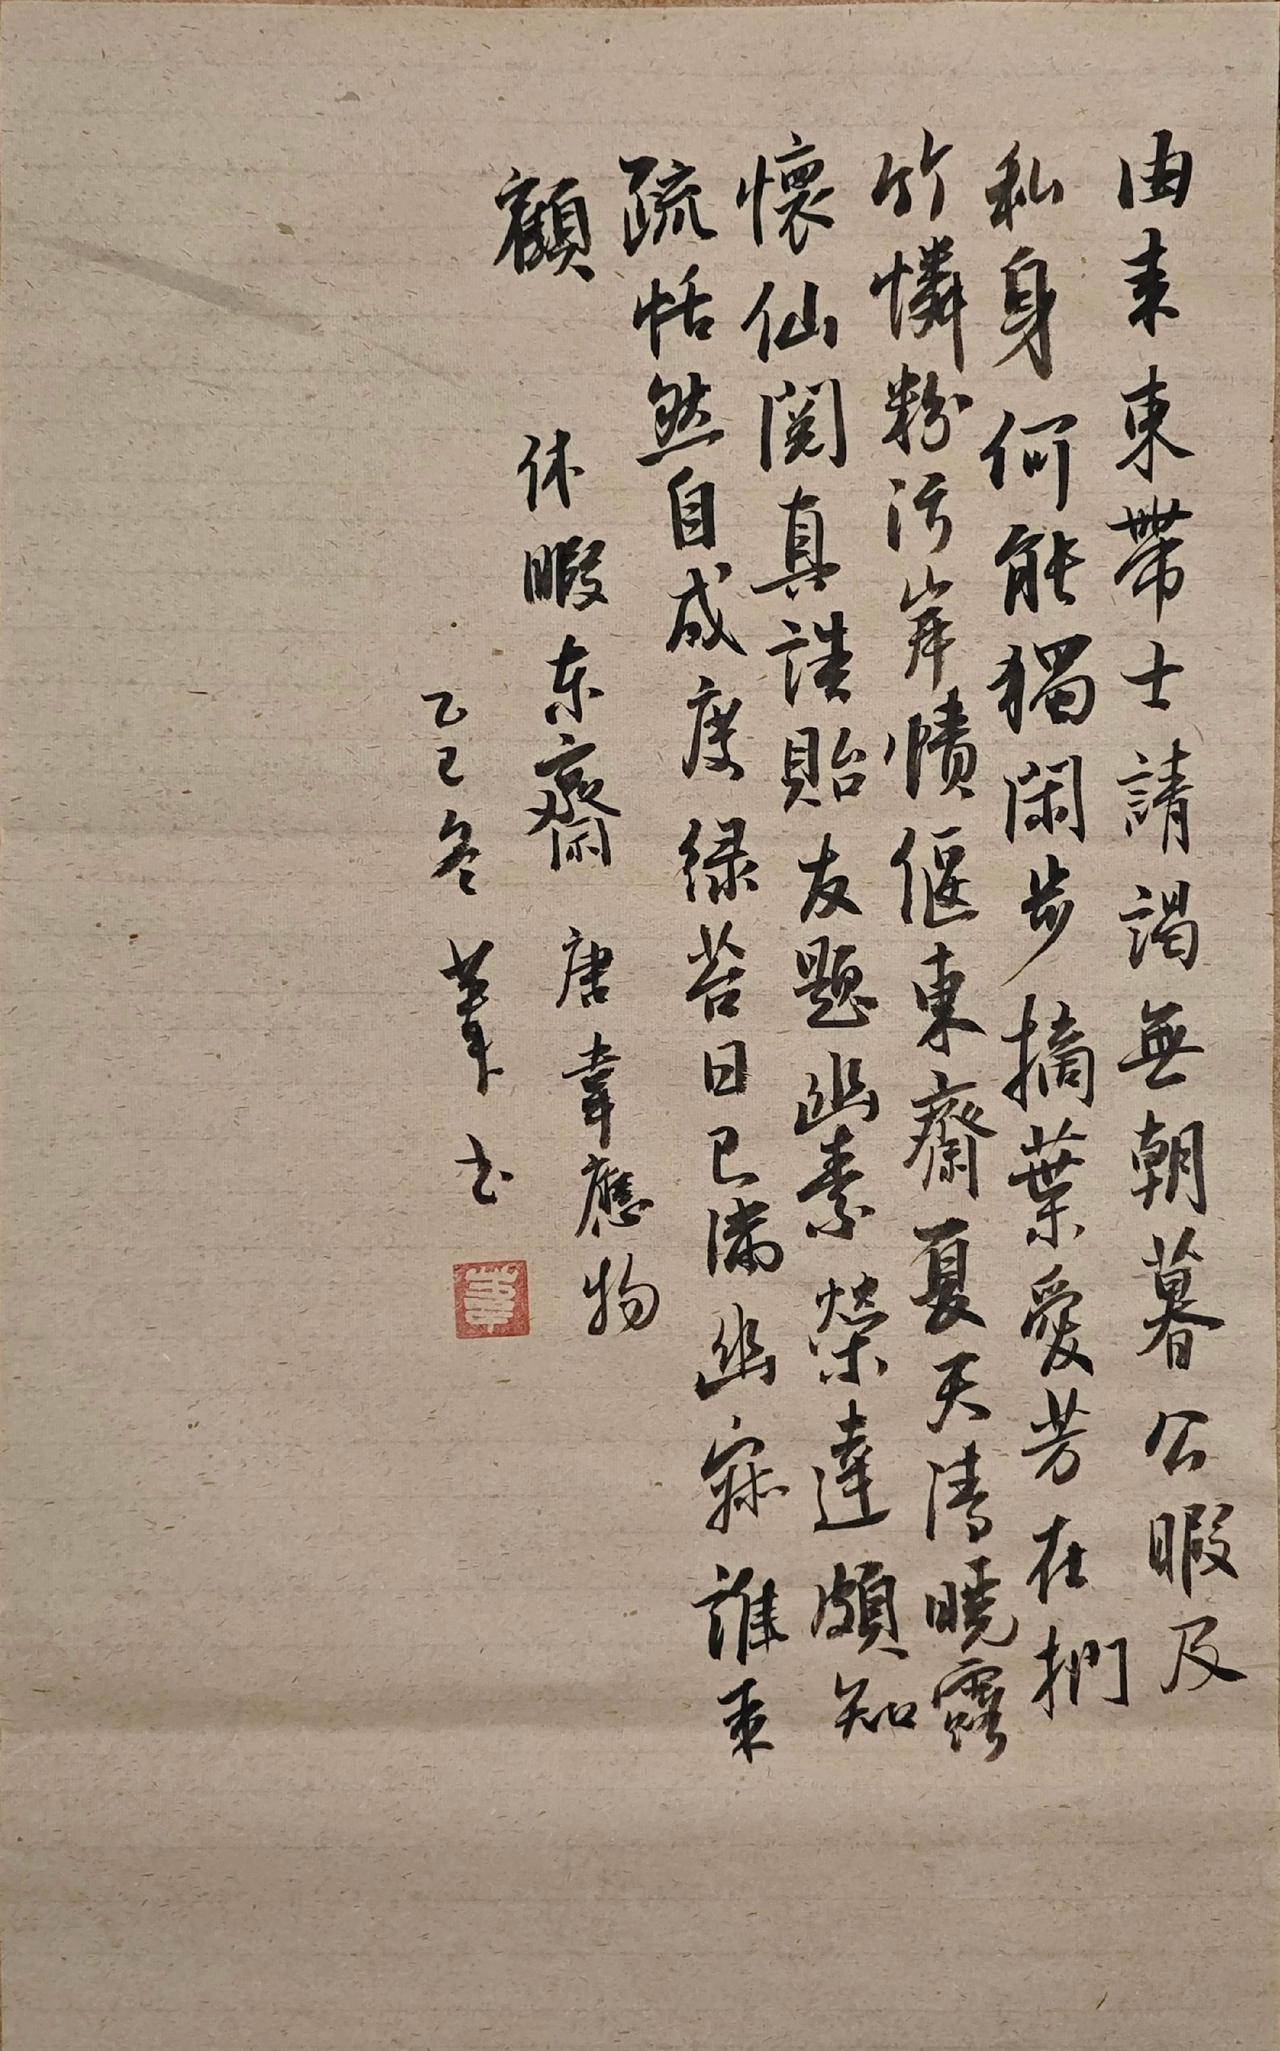 由来東帶士請謁無朝暮公暇及
私身何能獨閑步摘葉愛芳在捫
竹憐粉污岸幘偃東齋夏天清曉露
懷仙閱真誥貽友題幽素榮達頗知
疏恬然自成度绿苔日已滿幽寂誰来
顧
休暇东齋 唐韋應物
乙巳冬 葦书